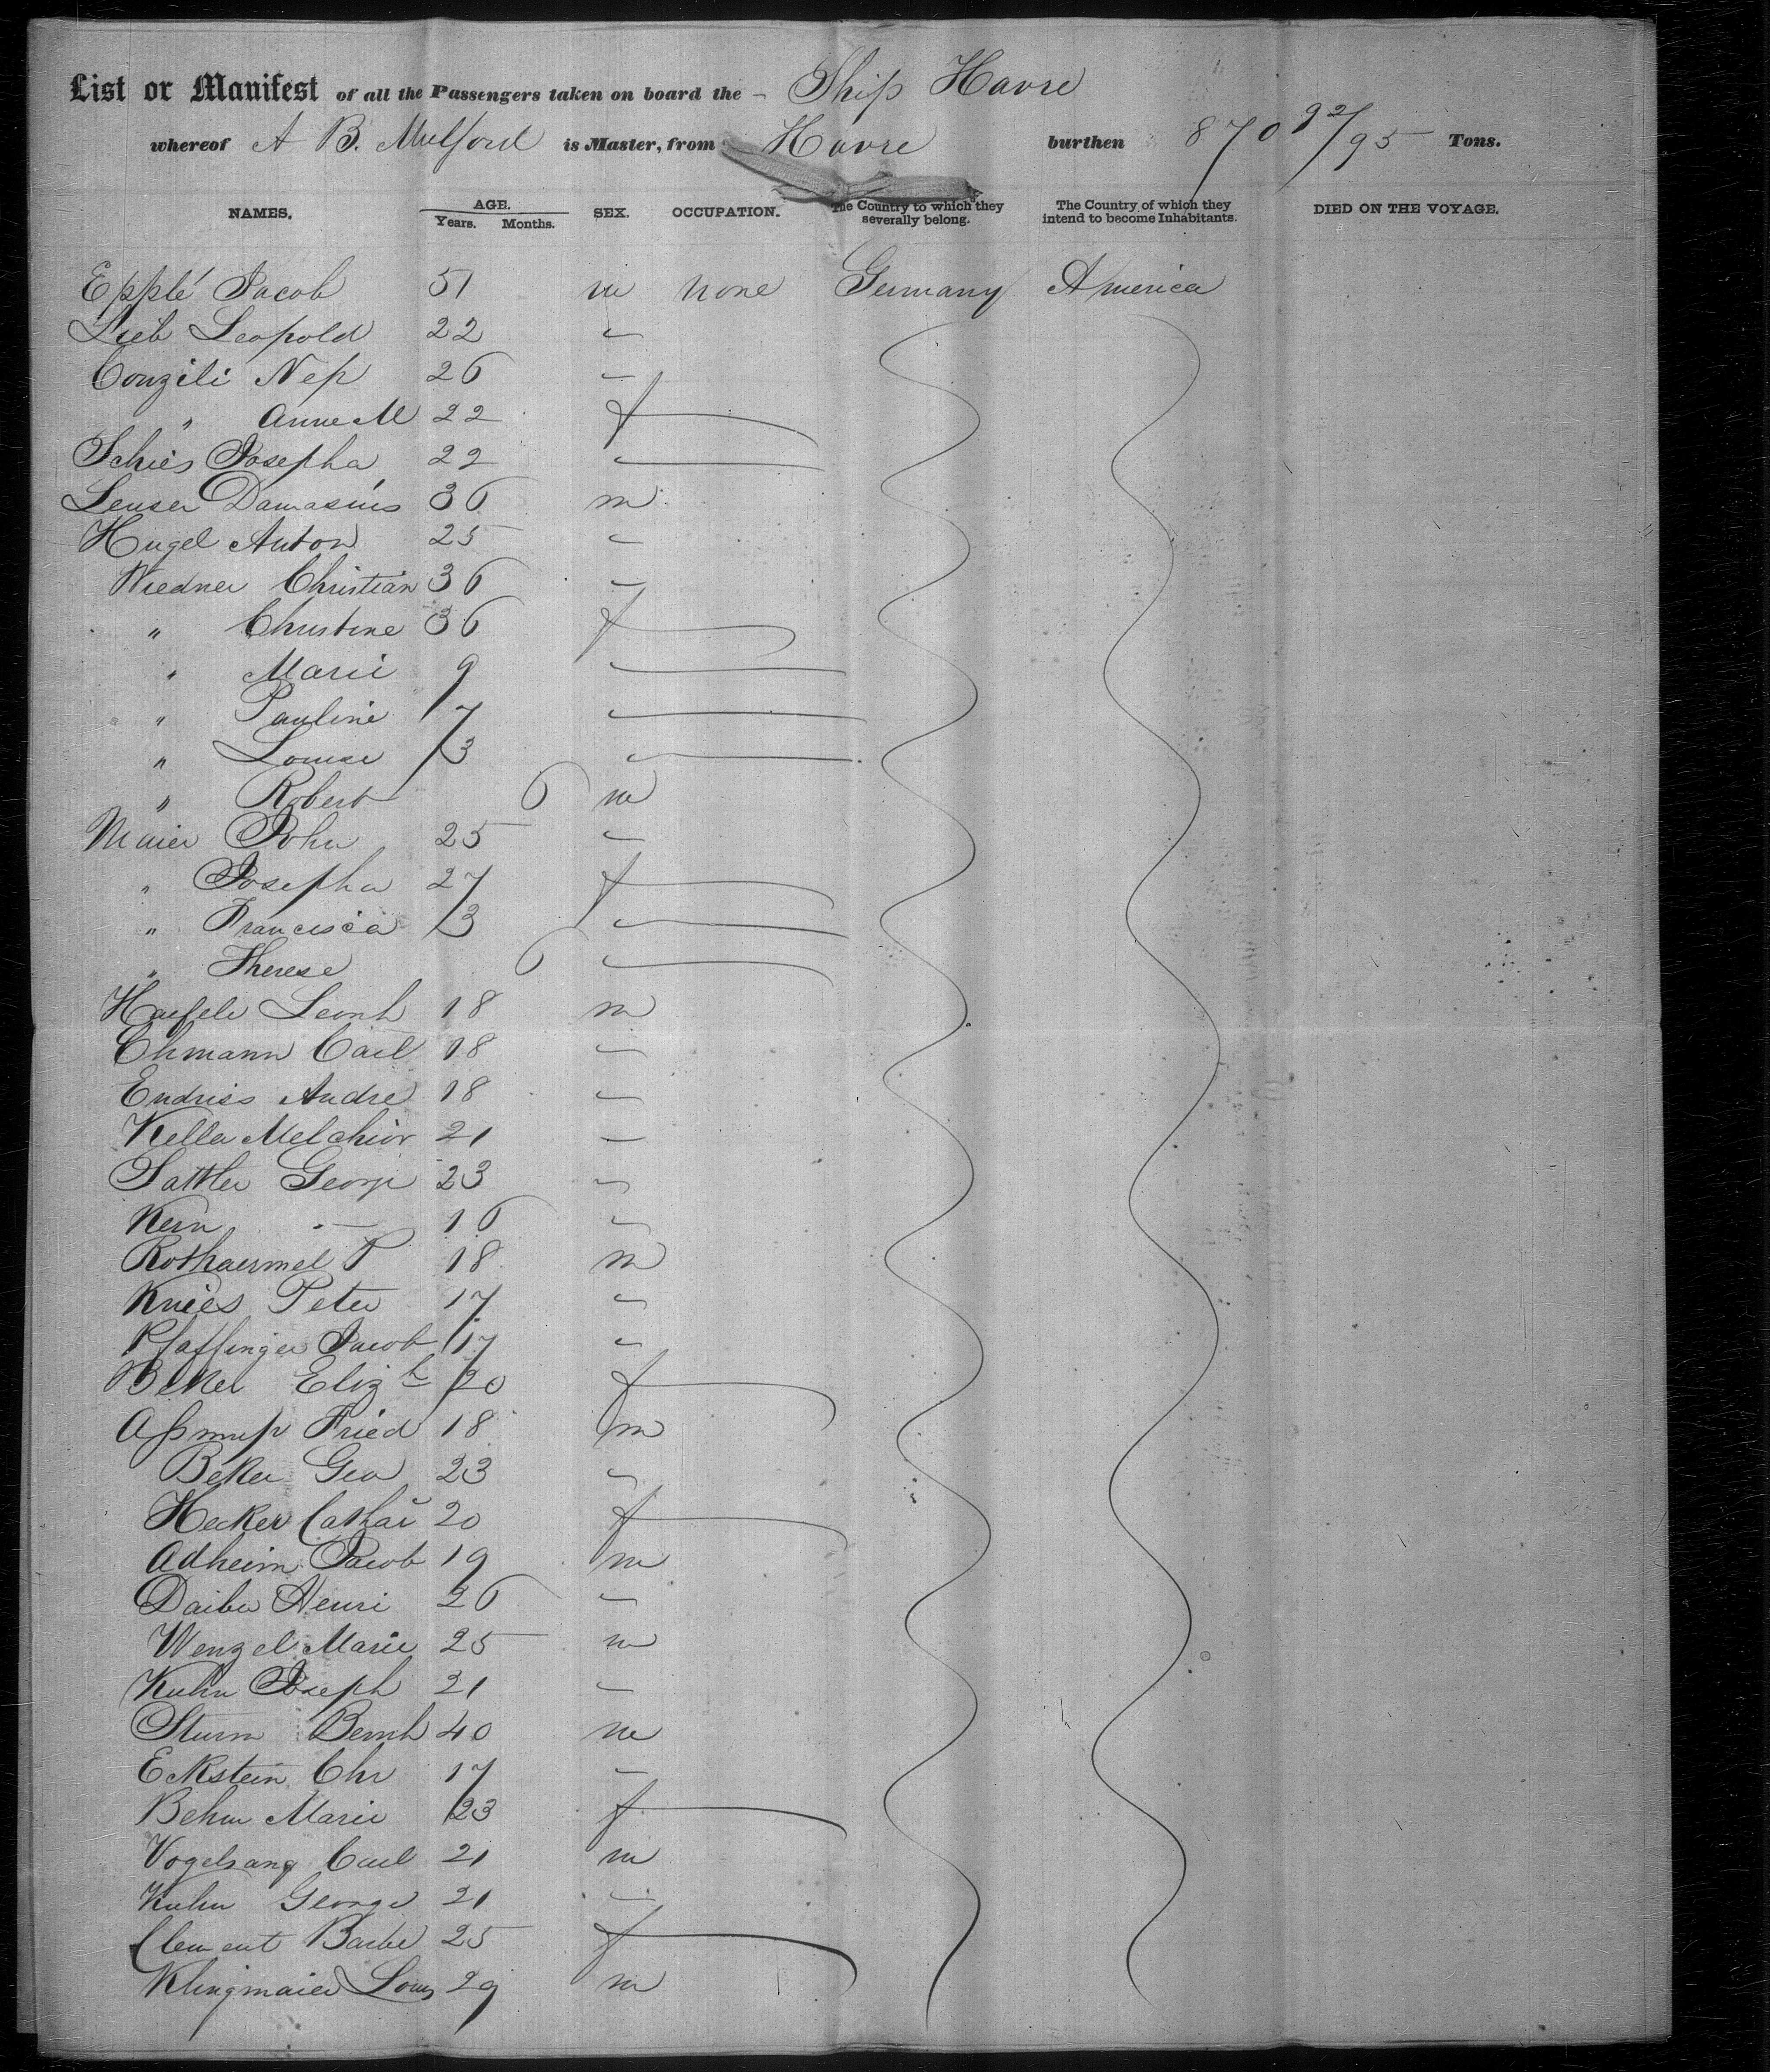 List or Manifest of all the Passengers taken on board the - Ship Havre
whereof A B. Mulford is Master, from Havre burthen 870 92/95 Tons.
NAMES. AGE. Years. Months. SEX. OCCUPATION. The Country to which they severally belong. The Country of which they intend to become Inhabitants. DIED ON THE VOYAGE.
Epplé Jacob 51 m none Germany America
Lieb Leopold 22 -
Conzili Nep 26 -
" Anne M 22 f
Schies Josepha 22 -
Leuser Damasius 36 m
Hugel Anton 25 -
Wiedner Christian 36 -
" Christine 36 f
" Marie 9 -
" Pauline 7 -
" Louise 3 -
" Robert 6 m
Maier John 25 -
" Josepha 27 f
" Francisca 3 -
" Therese 6 -
Haefele Leonh 18 m
Ehmann Carl 18 -
Endriss Andre 18 -
Keller Melchior 21 -
Sattler George 23 -
Kern - 16 -
Rothaermel P 18 m
Knies Peter 17 -
Pfaffinger Jacob 17 -
Beker Elizth 20 f
Aßmuß Fried 18 m
Beker Geo 23 -
Hecker Cathar 20 f
Adheim Jacob 19 m
Daiber Henri 26 -
Wenzel Marie 25 m
Kuhn Joseph 21 -
Sturm Bernh 40 m
Eckstein Chr 17 -
Behm Marie 23 f
Vogelsang Carl 21 m
Kuhn George 21 -
Clement Barbe 25 f
Klingmaier Louis 29 m